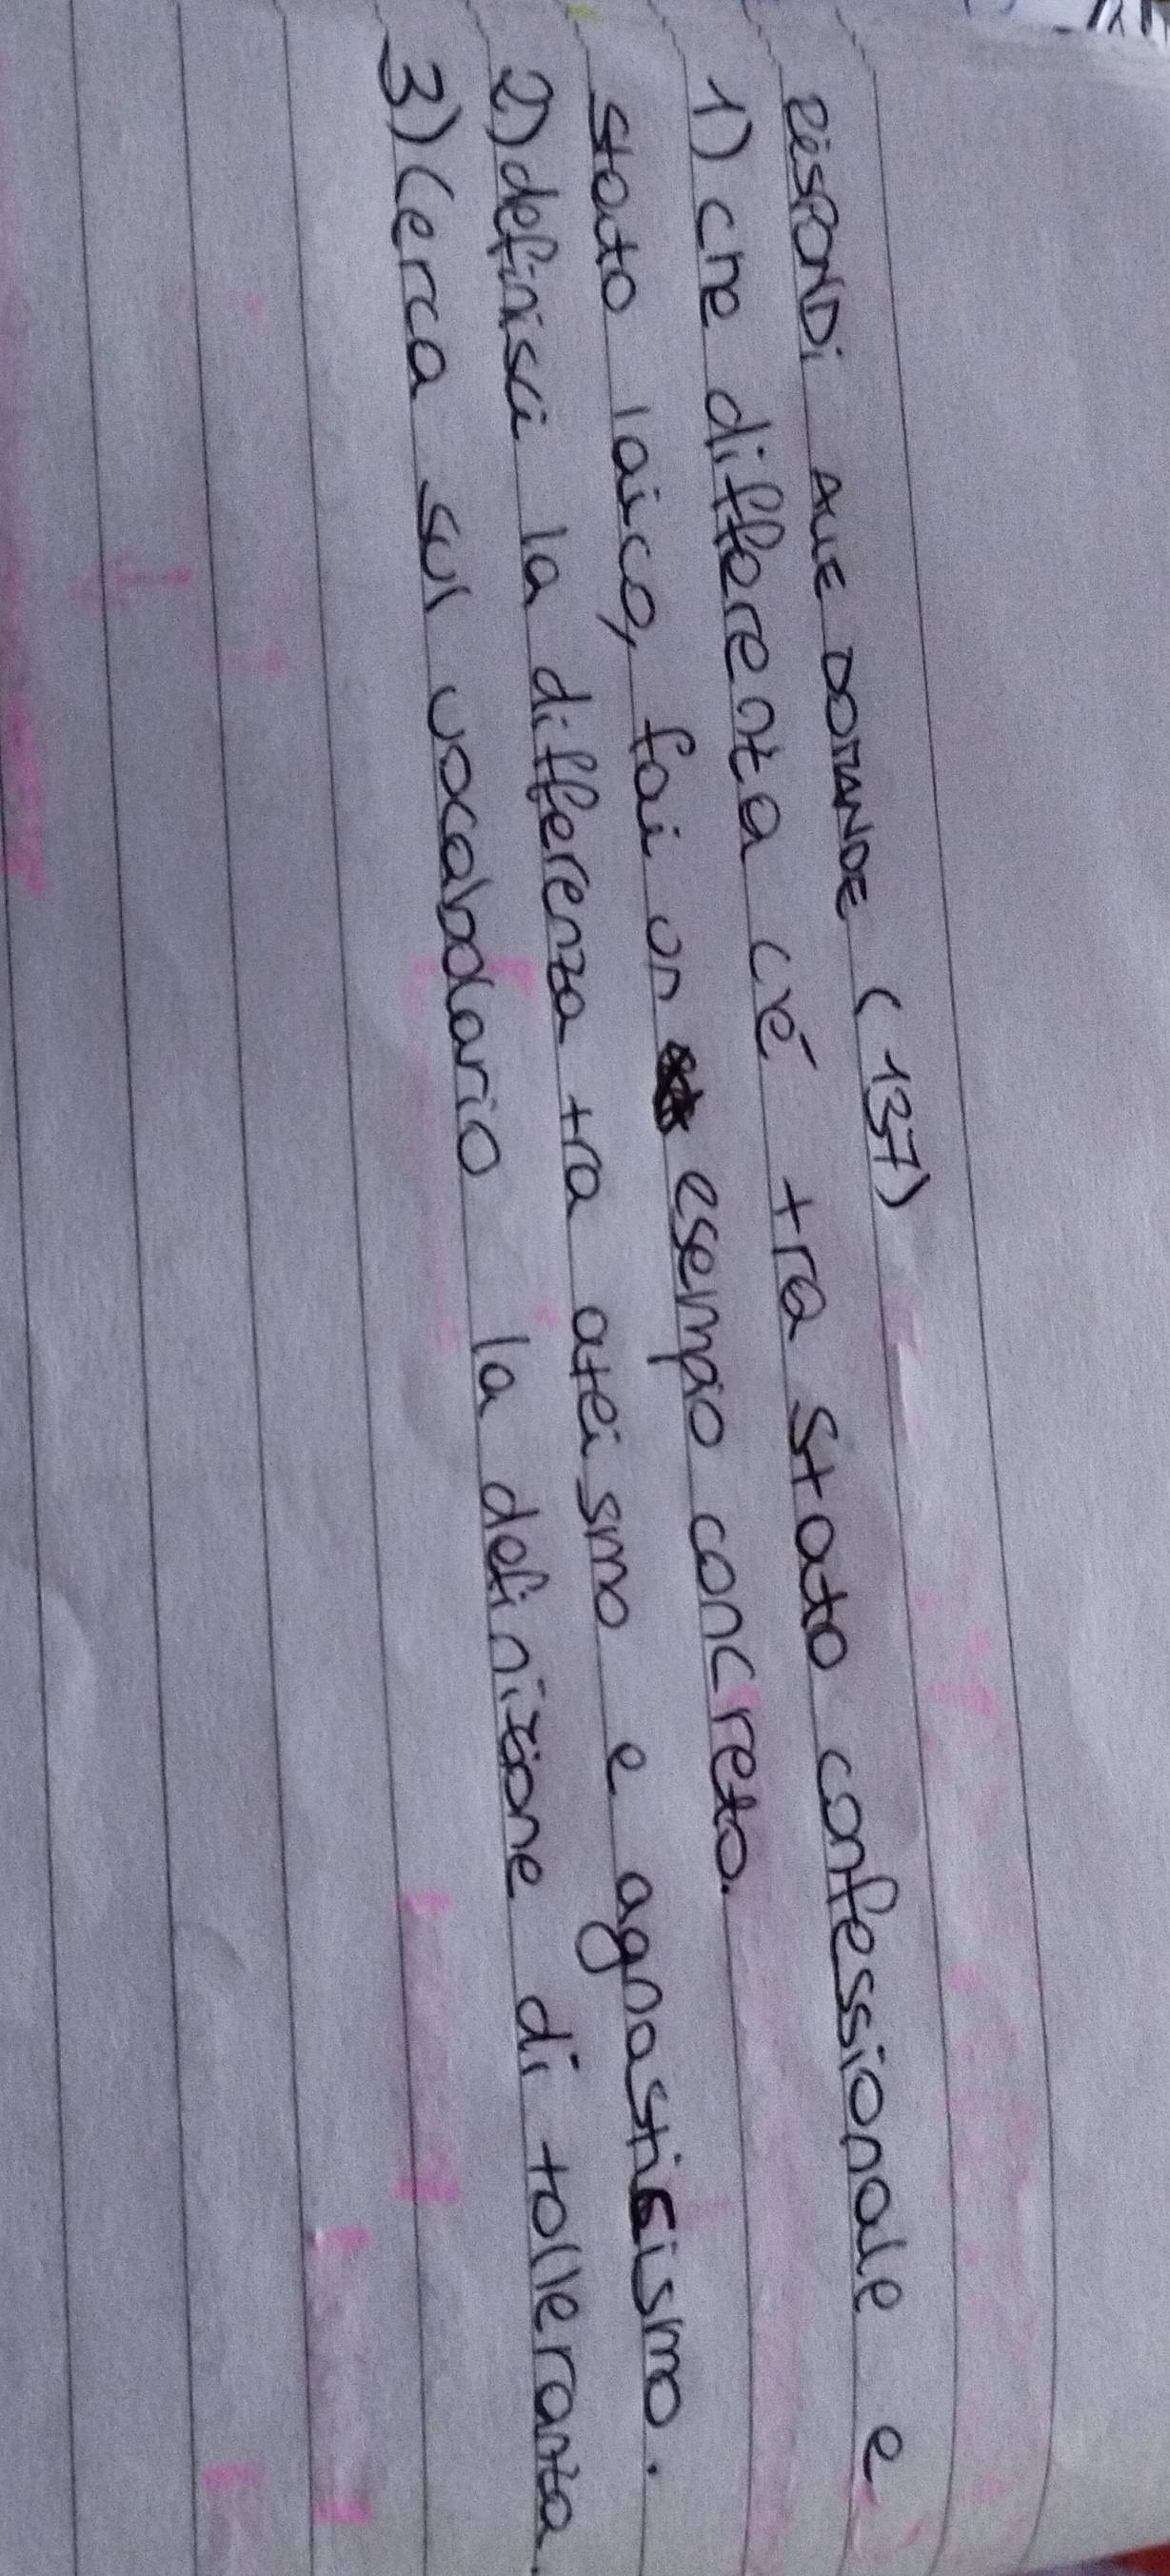 RISPONDI ALLE DOMANDE (137)
1) che differenza c'é tra stato confessionale e
stato laico, fai un esempio concreto.
2) definisci la differenza tra ateismo e agnasticismo.
3) Cerca sul vocabolario la definizione di tolleranza.